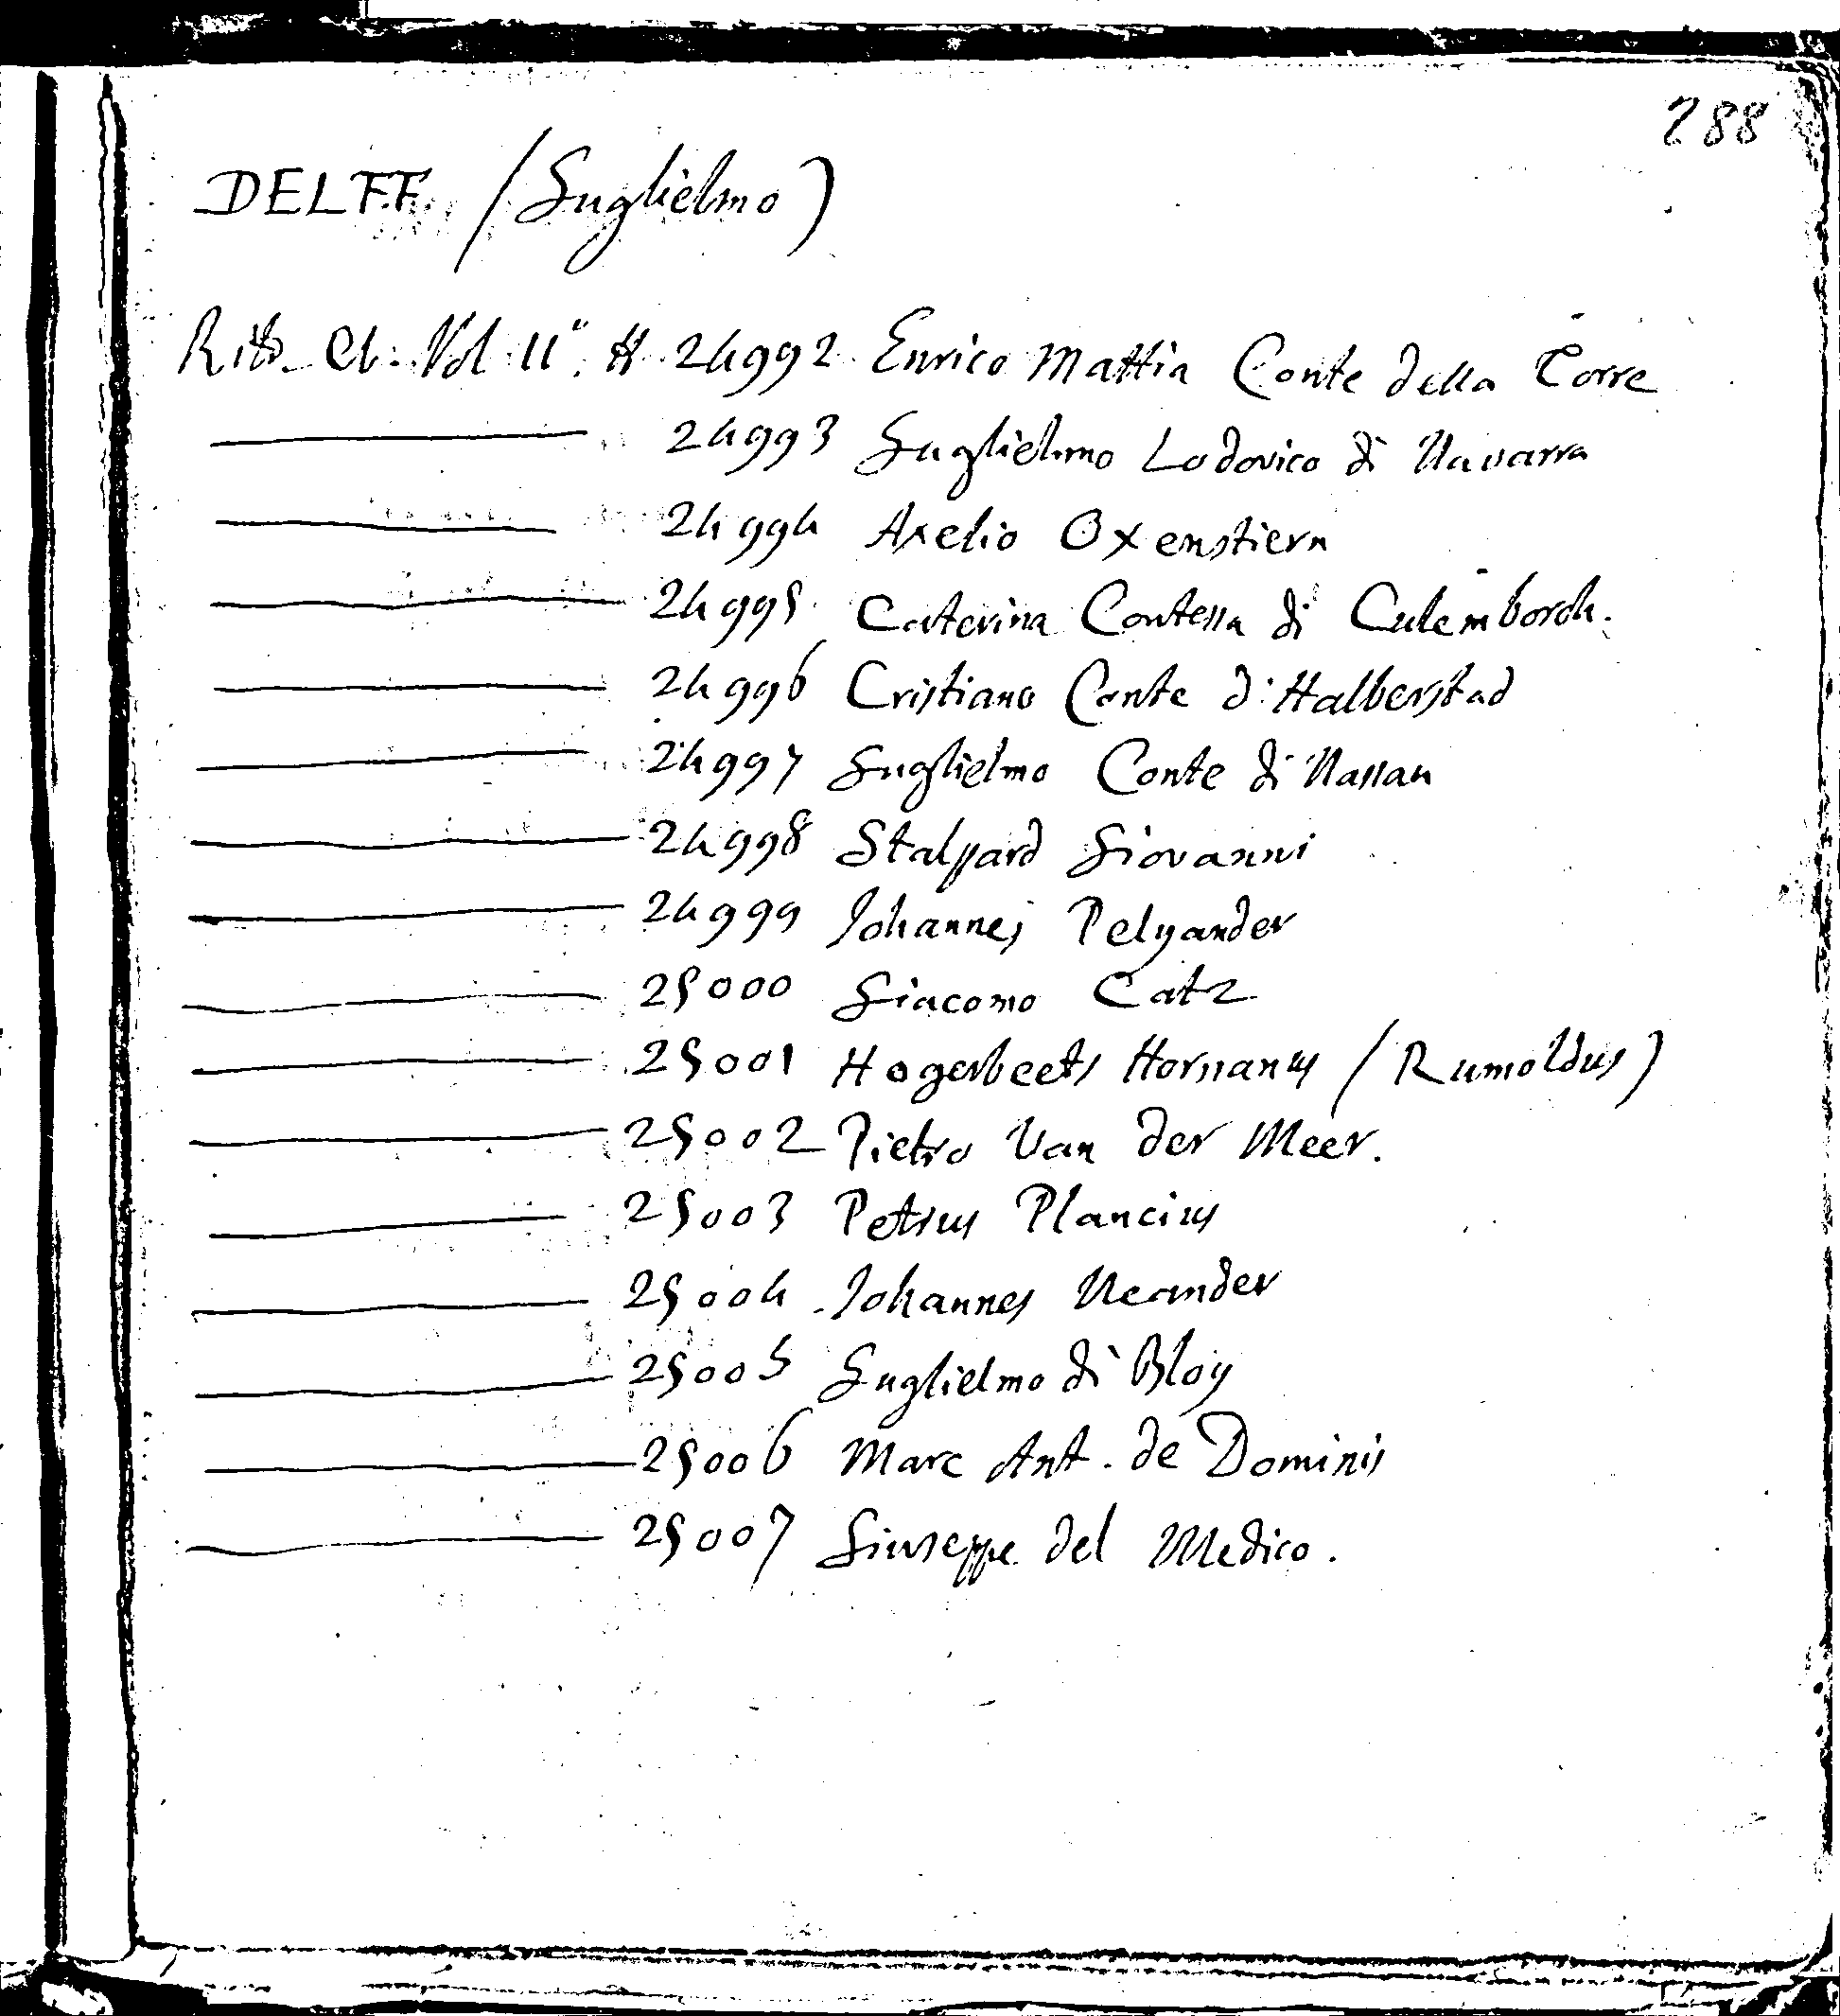 288
DELFF (Guglielmo)
Ritr. Cl. Vol 11°. # 24992 Enrico Mattia Conte della Torre
24993 Guglielmo Lodovico di Navarra
24994 Axelio Oxenstiern
24995 Caterina Contessa di Culemborch.
24996 Cristiano Conte d'Halberstad
24997 Guglielmo Conte di Nassau
24998 Stalpard Giovanni
24999 Johannes Polyander
25000 Giacomo Catz
25001 Hogerbeets Hornanus (Rumoldus)
25002 Pietro Van der Meer.
25003 Petrus Plancius
25004 Johannes Neander
25005 Guglielmo di Bloy
25006 Marc Ant. de Dominis
25007 Giuseppe del Medico.